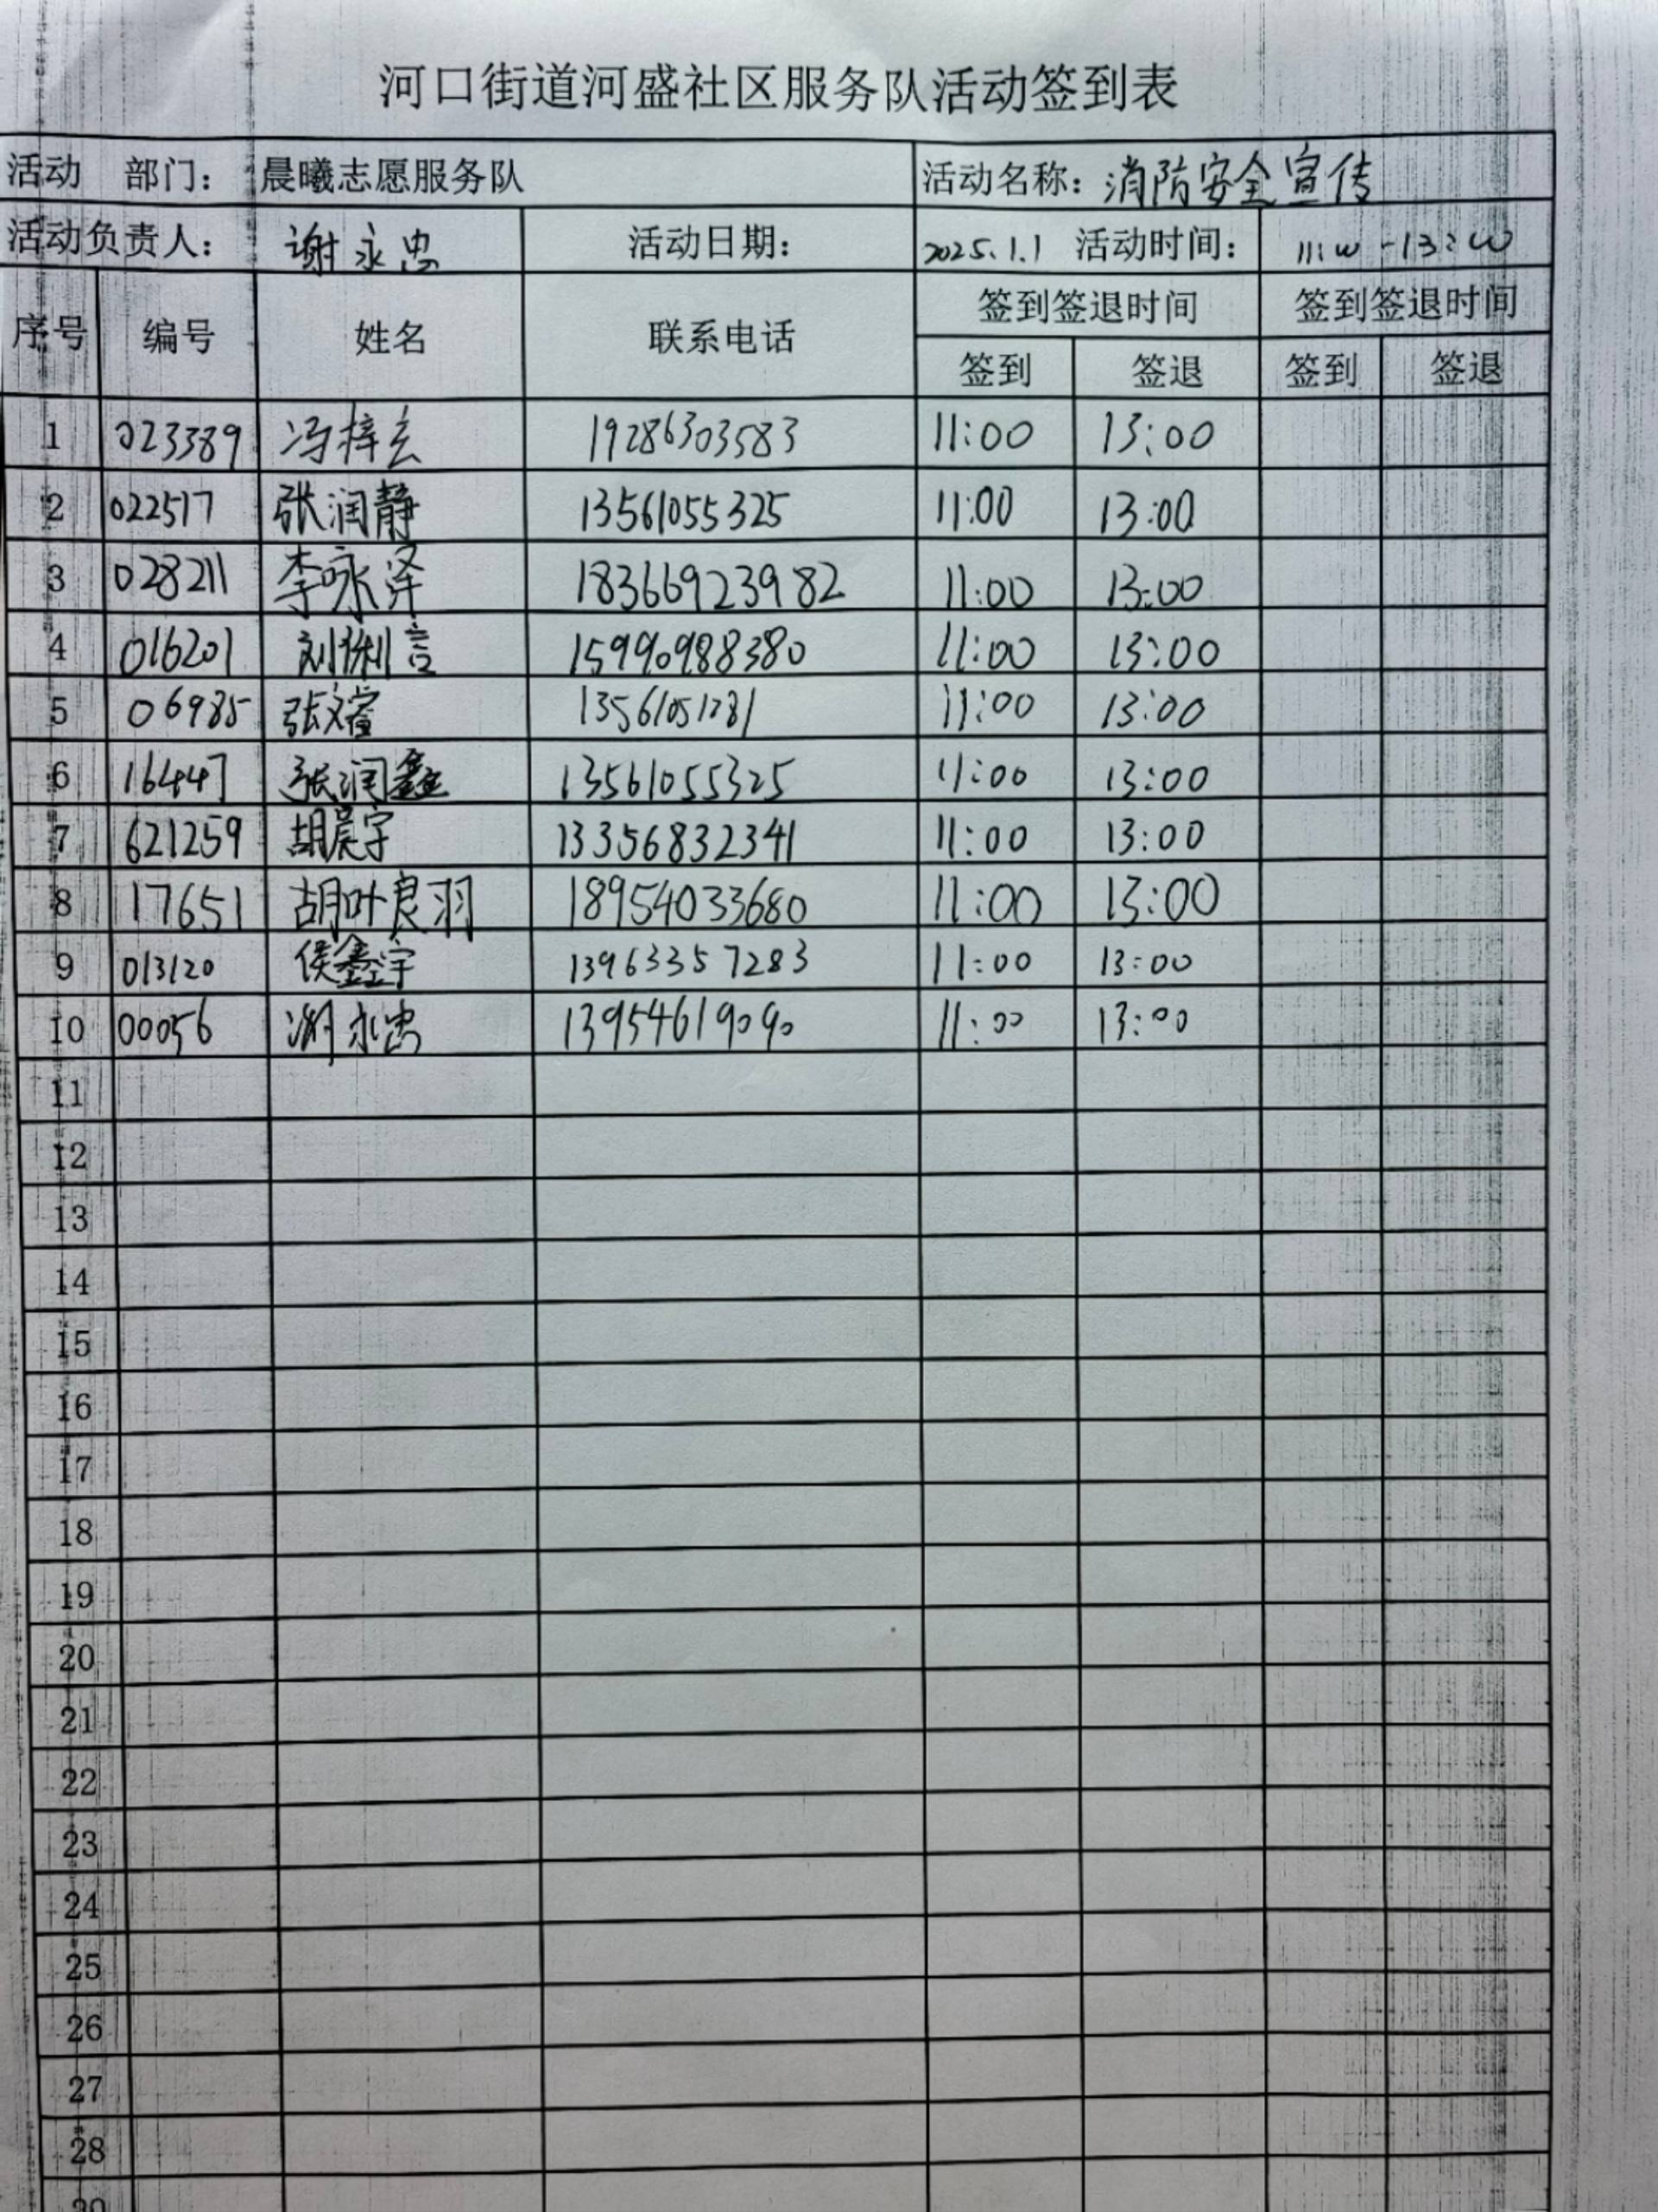 河口街道河盛社区服务队活动签到表
活动 部门： 晨曦志愿服务队 活动名称：消防安全宣传
活动负责人： 谢永忠 活动日期： 2025.1.1 活动时间： 11:00-13:00
序号 编号 姓名 联系电话 签到签退时间 签到签退时间
签到 签退 签到 签退
1 023389 冯梓玄 19286303583 11:00 13:00
2 022517 张润静 13561055325 11:00 13:00
3 028211 李咏泽 18366923982 11:00 13:00
4 016201 15990988380 11:00 13:00
5 06985 张文萱 13561051281 11:00 13:00
6 16447 张润鑫 13561055325 11:00 13:00
7 621259 胡晨宇 13356832341 11:00 13:00
8 17651 胡叶良羽 18954033680 11:00 13:00
9 013120 侯鑫宇 13963357283 11:00 13:00
10 00056 谢永忠 13954619090 11:00 13:00
11
12
13
14
15
16
17
18
19
20
21
22
23
24
25
26
27
28